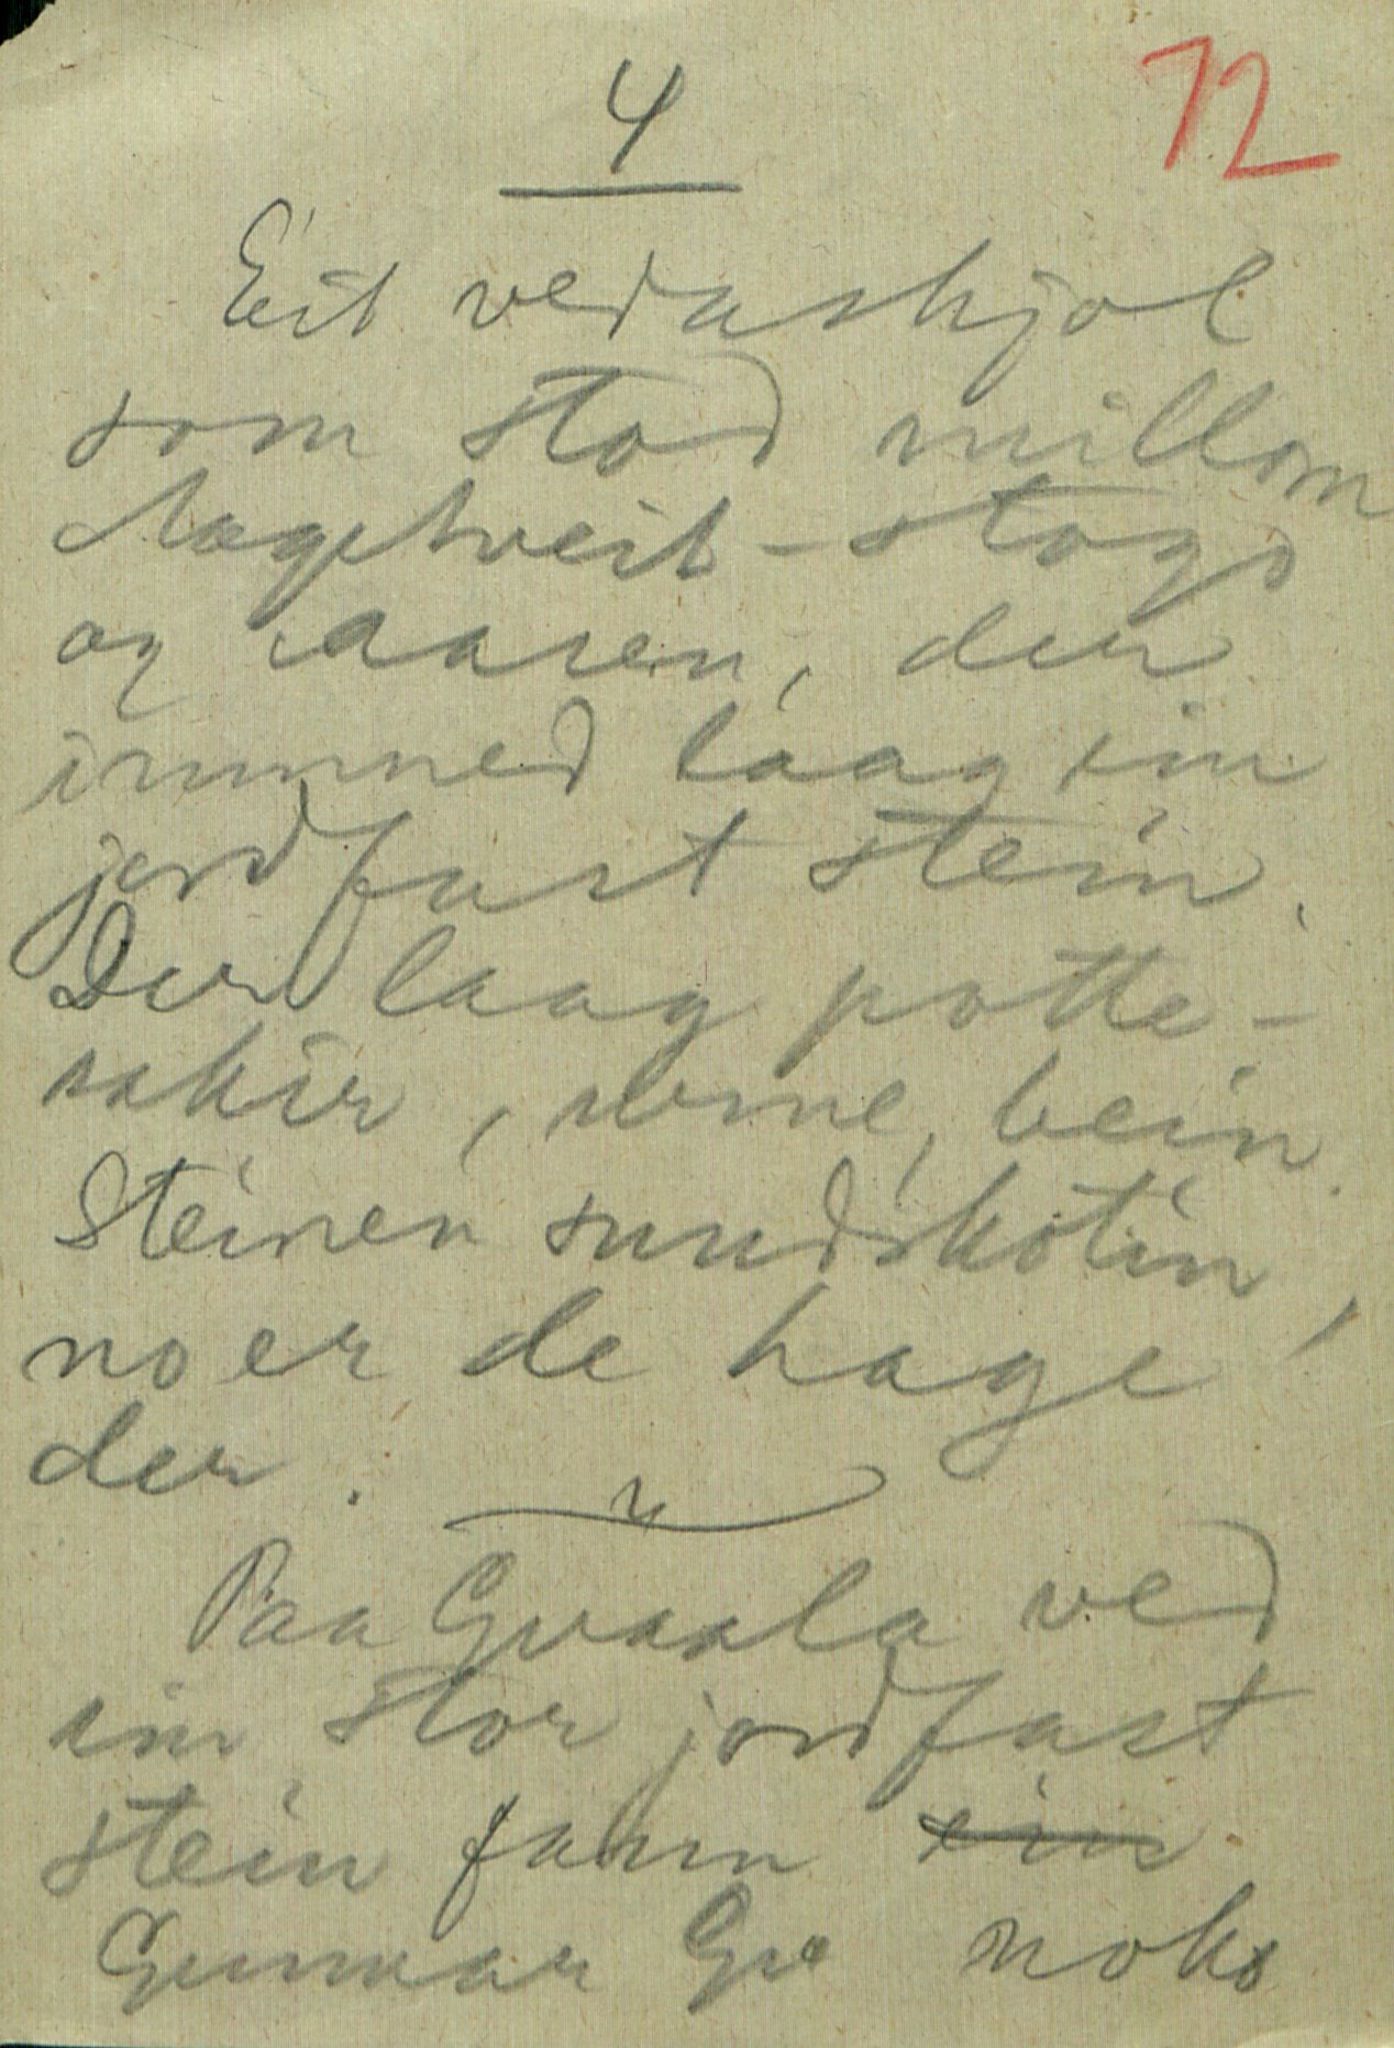 4 72
Eit vedaskjol
som stod millom
Nagetveit-stogo
og aasen, der
innmed laag ein
jordfast stein.
Der laag potte-
sker, bein.
Steinen sundskotin,
no er de hage
der.
Paa Gvaala ved
ein stor jordfast
stein fann ein
Gunnar Gv noko